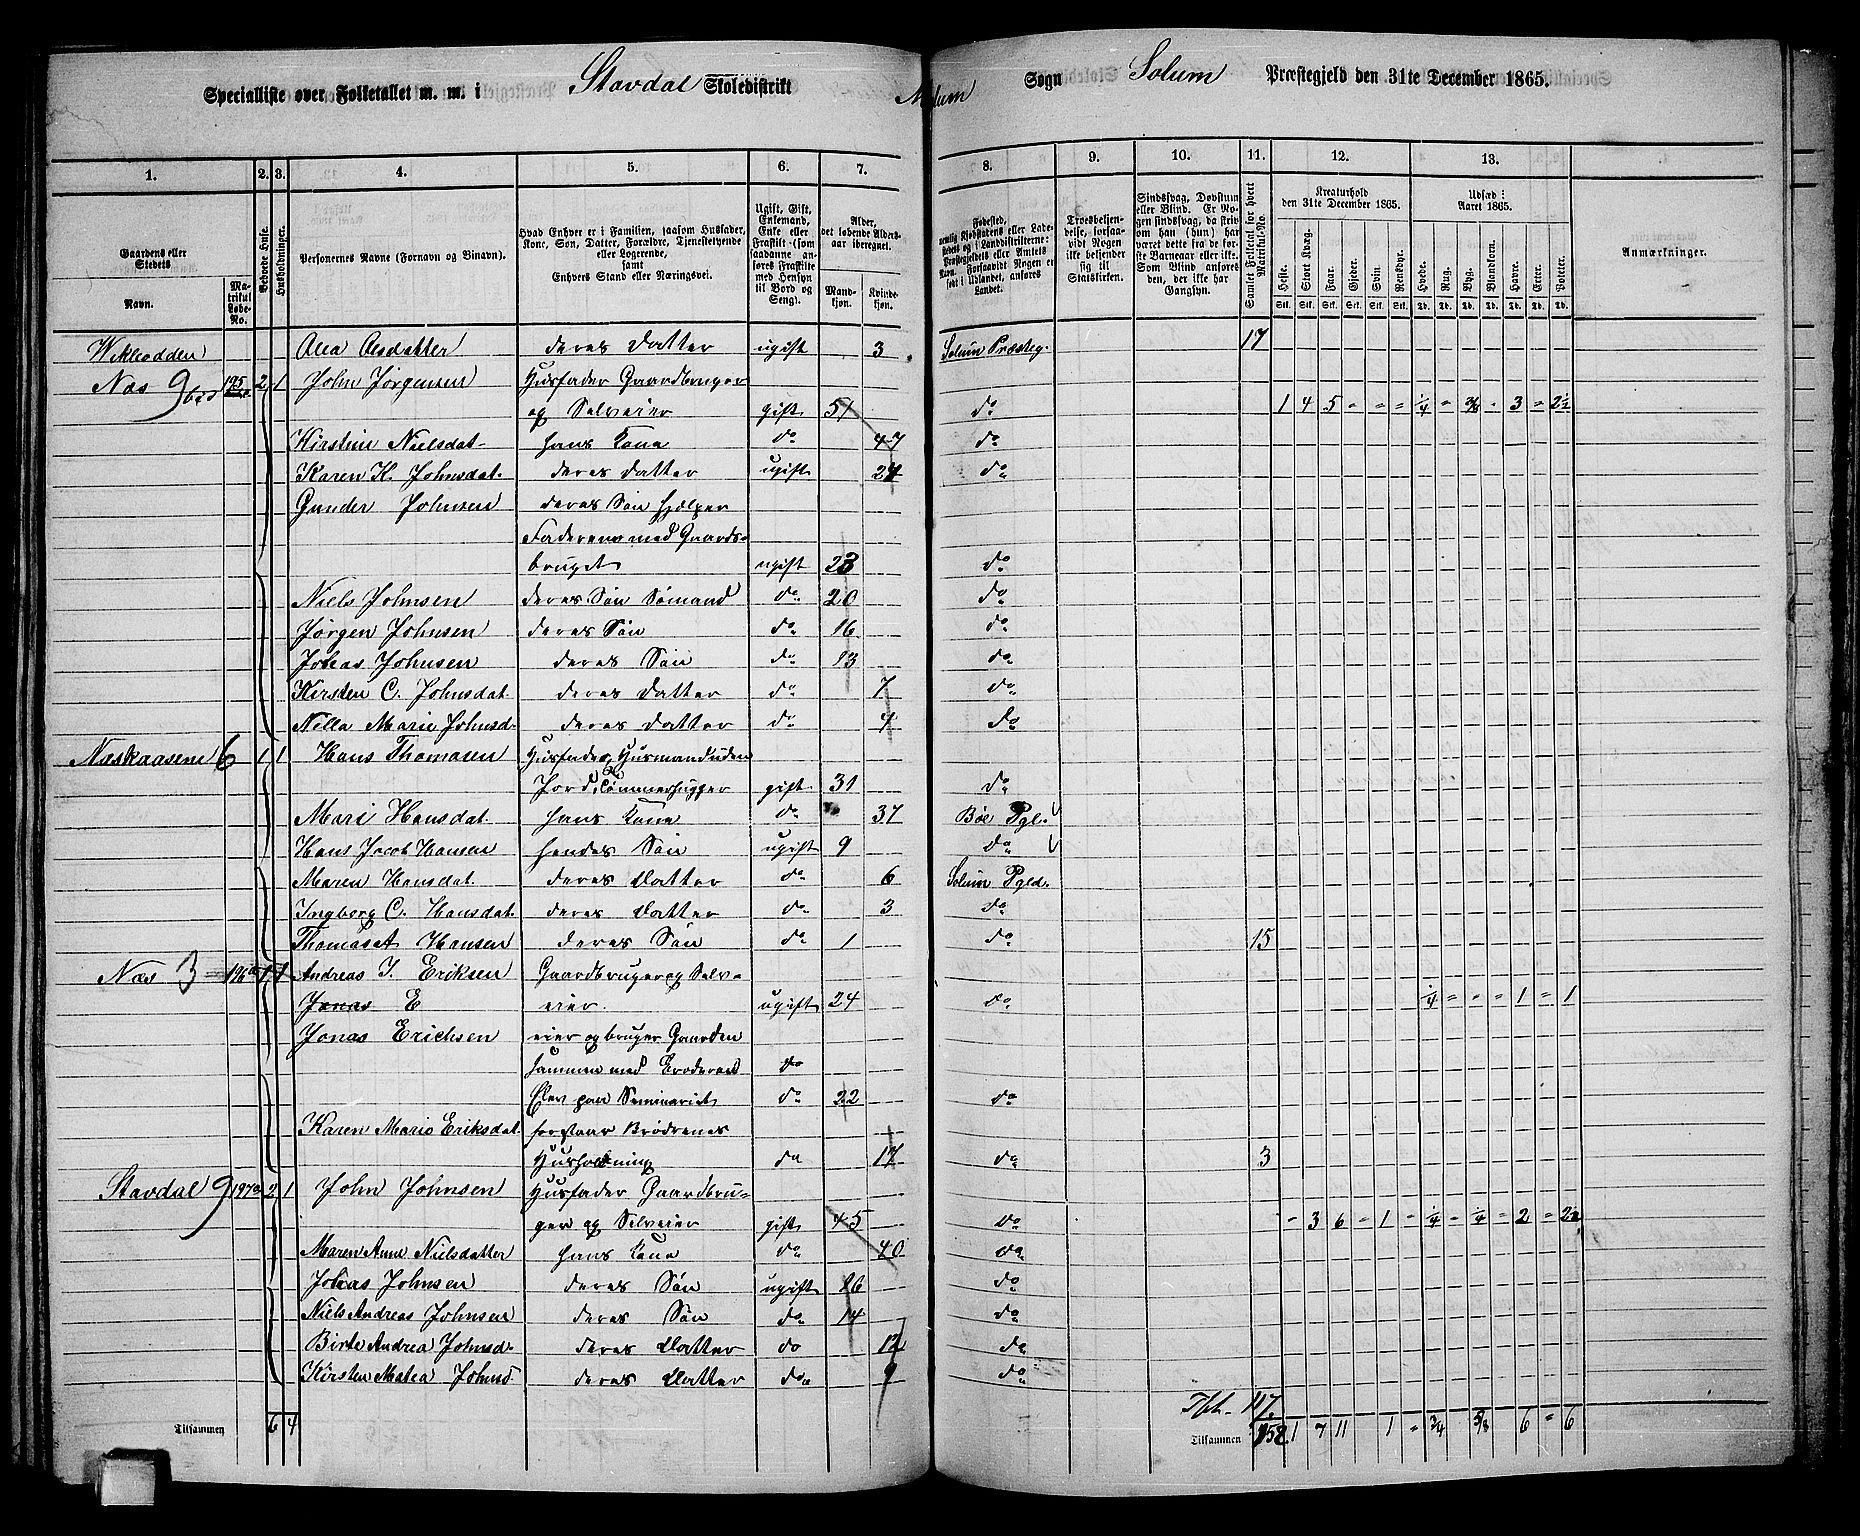 Specialliste over Folketallet m. m. i Stavdal Skoledistrikt Melum Sogn Solum Præstegjeld den 31te December 1865.
1. 2. 3. 4. 5. 6. 7. 8. 9. 10. 11. 12. 13.
Gaardens eller Stedets
Navn.
Matrikul Løbe-No.
Beboede Huse.
Husholdninger.
Personernes Navne (Fornavn og Binavn).
Hvad Enhver er i Familien, saasom Husfader, Kone, Søn, Datter, Forældre, Tjenestetyende eller Logerende, samt Enhvers Stand eller Næringsvei.
Ugift, Gift, Enkemand, Enke eller Fraskilt (som saadanne anføres Fraskilte med Hensyn til Bord og Seng).
Alder, det løbende Alders-aar iberegnet.
Mand-kjøn. Kvinde-kjøn.
Fødested,
Troesbekjendelse, forsaavidt Nogen ikke bekjender sig til Statskirken.
Sindssvag, Døvstum eller Blind. Er Nogen sindssvag, da skrives om han (hun) har været dette fra de første Barneaar eller ikke. Som Blind anføres den, der ikke har Gangsyn.
Samlet Folketal for hvert Matrikul-No.
Kreaturhold den 31te December 1865.
Heste. Stort Kvæg. Faar. Gjeder. Svin. Rensdyr.
Udsæd: Aaret 1865.
Hvede. Rug. Byg. Blandkorn. Havre. Erter. Poteter.
Anmærkninger.
Stk. Stk. Stk. Stk. Stk. Stk. Td. Td. Td. Td. Td. Td. Td.
Olea Olsdatter deres Datter ugift 3 Solum Præsteg. 17
Næs 9 195 2 1 John Jørgensen Husfader Gaardbruger
og Selveier gift 51 do 1 4 5 " " " 1/4 " 3/8 " 3 " 2 1/2
Kirstine Nielsdat hans Kone do 47 do
Karen K. Johnsdat. deres Datter ugift 24 do
Gunder Johnsen deres Søn hjelper
Faderen med Gaards-
bruget ugift 23 do
Niels Johnsen deres Søn Sømand do 20 do
Jørgen Johnsen deres Søn do 16 do
Johas Johnsen deres Søn do 13 do
Kirsten C. Johnsdat. deres Datter do 7 do
Nella Marie Johnsd. deres Datter do 4 do
Næskaasene 6 1 1 Hans Thomasen Husfader, Husmand uden
Jord, Tømmerhugger gift 31 do
Mari Hansdat. hans Kone do 37 Bøe Pgl.
Hans Jacob Hansen hendes Søn ugift 9 do
Maren Hansdat. deres Datter do 6 Solum Pgld.
Ingborg C. Hansdat. deres Datter do 3 do
Hansen deres Søn do 1 do 15
Næs 3 196 1 1 Andreas I. Eriksen Gaardbruger og Selv-
Jonas E eier. ugift 24 do 1/4 " " " 1 " 1
Jonas Erichsen eier og bruger Gaarden
sammen med Broderen do
Elev paa Seminariet do 22 do
Karen Marie Eriksdat. forestaar Brødrenes
Husholdning do 17 do 3
Stavdal 9 197 2 1 John Johnsen Husfader Gaardbru-
ger og Selveier gift 45 do " 3 6 " 1 " 1/4 " 1/4 " 2 " 2 1/2
Maren Anne Nielsdatter hans Kone do 40 do
Johas Johnsen deres Søn ugift 16 do
Niels Andreas Johnsen deres Søn do 14 do
Birte Andrea Johnsd. deres Datter do 12 do
Kirsten Matea Johnsd deres Datter do 9 do
117.
Tilsammen 6 4 Tilsammen 1 7 11 1 " 2/4 5/8 6 " 6